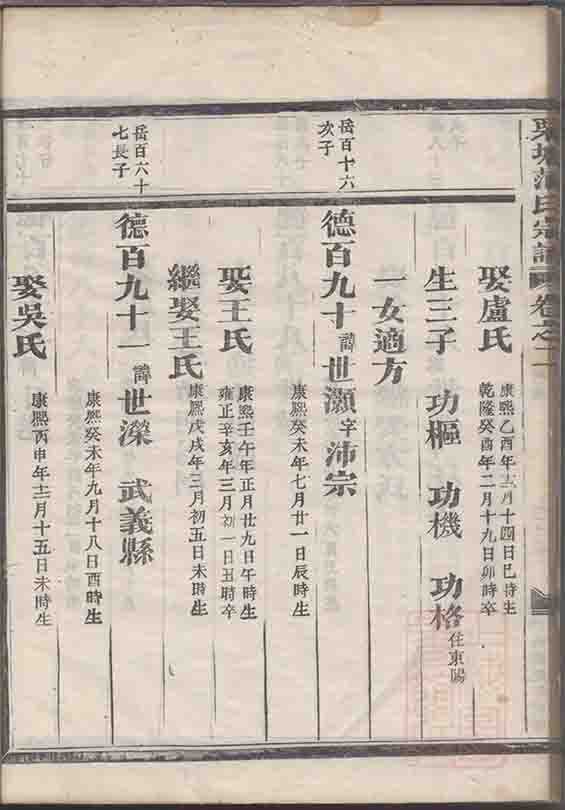 宗譜 卷之二
娶盧氏 康熙乙酉年十二月十四日巳時生
乾隆癸酉年二月十九日卯時卒
生三子 功樞 功機 功格 住東陽
一女適方
岳百十六
次子
德百九十 諱世灝 字沛宗
康熙癸未年七月廿一日辰時生
娶王氏 康熙壬午年正月廿九日午時生
雍正辛亥年三月初一日丑時卒
繼娶王氏 康熙戊戌年三月初五日未時生
岳百六十
七長子
德百九十一 諱世濚 武義縣
康熙癸未年九月十八日酉時生
娶吳氏 康熙丙申年十二月十五日未時生